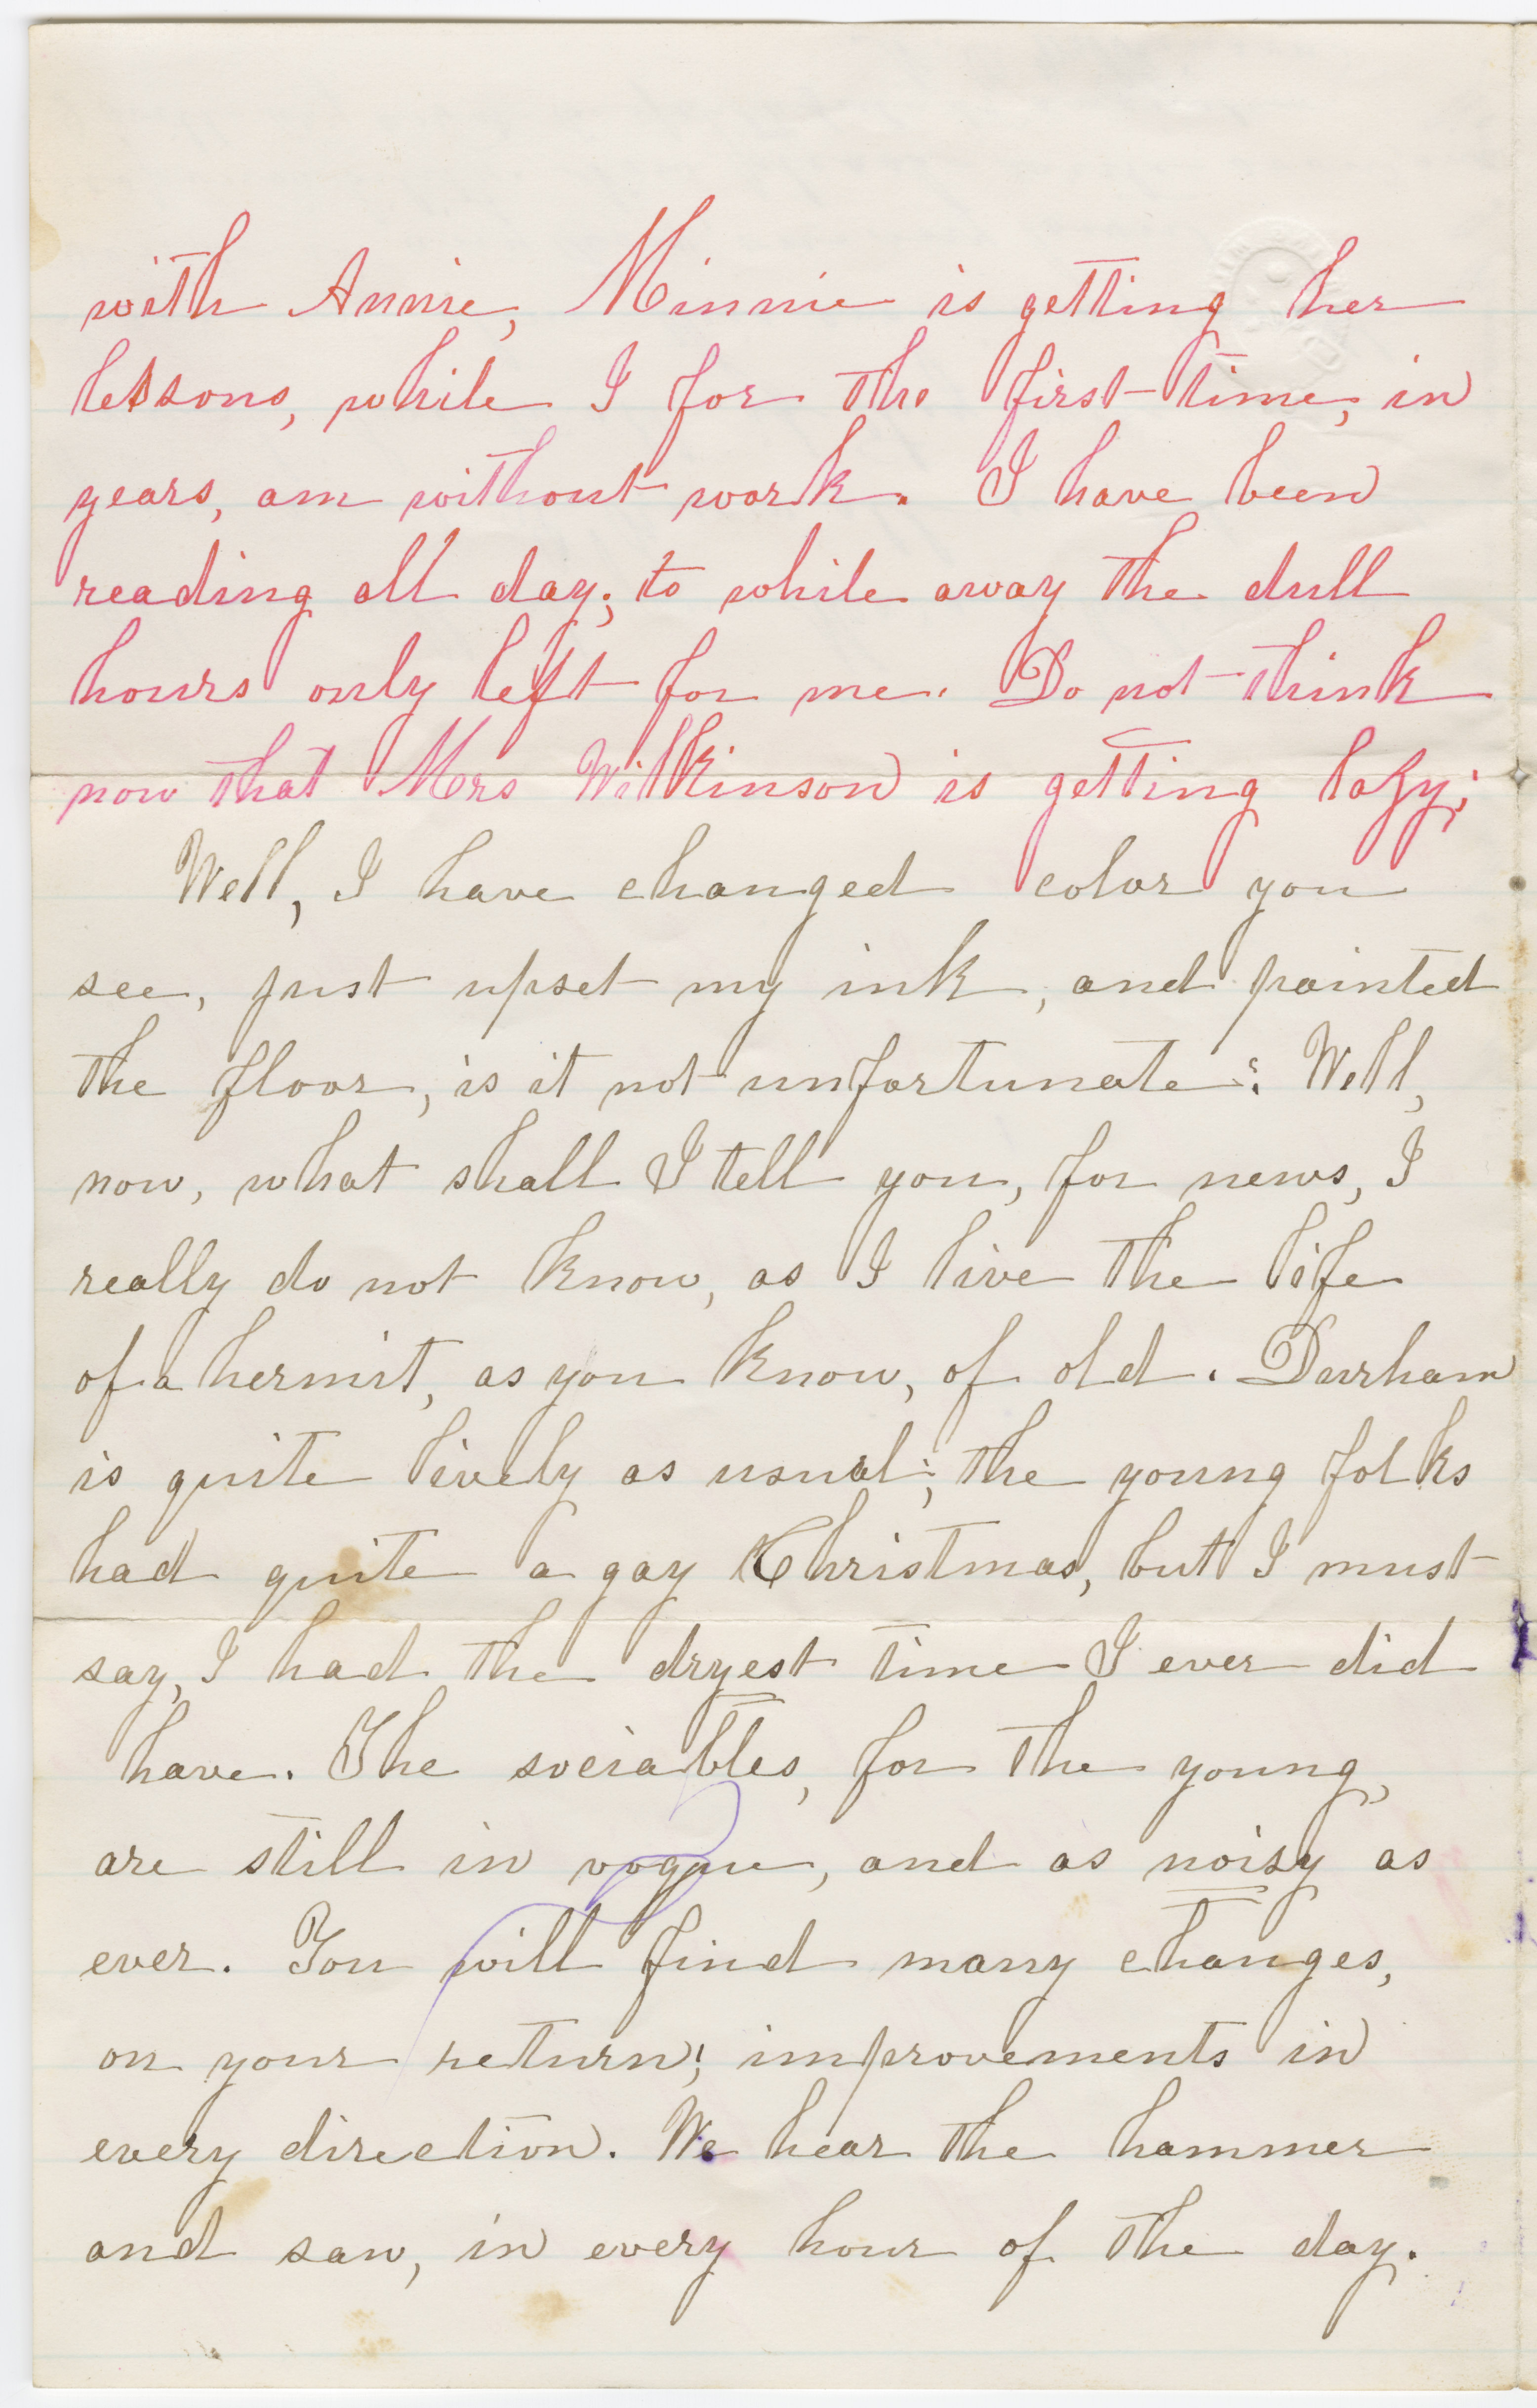 with Annie, Minnie is getting her
lessons, while I for the first time, in
years, am without work. I have been
reading all day; to while away the dull
hours only left for me. Do not think
now that Mrs Wilkinson is getting lazy;
Well, I have changed color you
see, just upset my ink, and painted
the floor, is it not unfortunate? Well,
now, what shall I tell you, for news, I
really do not know, as I live the life
of a hermit, as you know, of old. Durham
is quite lively as usual; the young folks
had quite a gay Christmas, but I must
say, I had the dryest time I ever did
have. The sociables, for the young,
are still in vogue, and as noisy as
ever. You will find many changes,
on your return; improvements in
every direction. We hear the hammer
and saw, in every hour of the day.